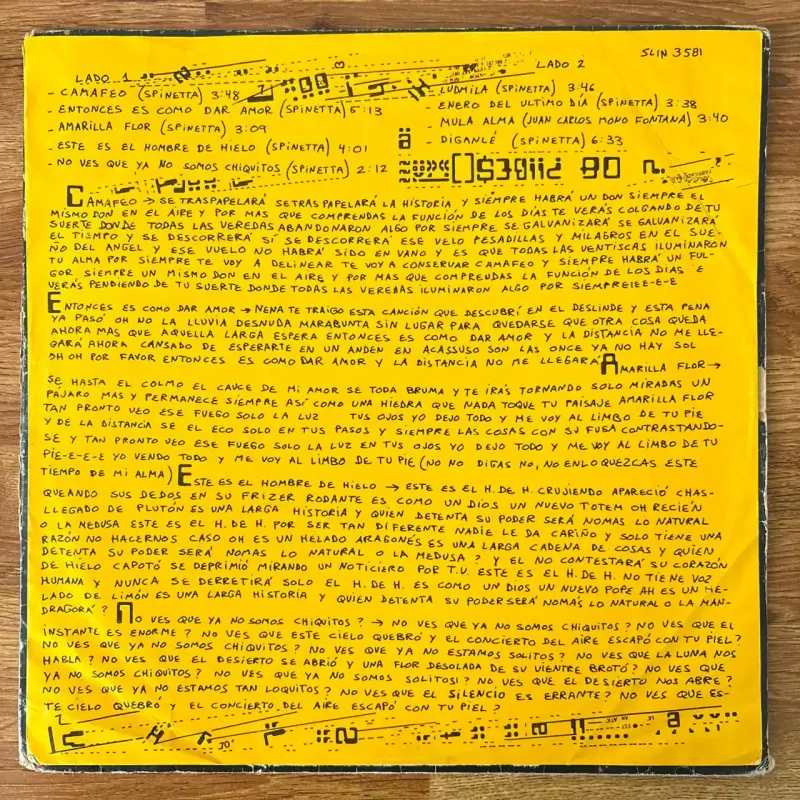 SLIN 3581
LADO 1
- CAMAFEO (SPINETTA) 3:48
- ENTONCES ES COMO DAR AMOR (SPINETTA) 5:13
- AMARILLA FLOR (SPINETTA) 3:09
- ESTE ES EL HOMBRE DE HIELO (SPINETTA) 4:01
- NO VES QUE YA NO SOMOS CHIQUITOS (SPINETTA) 2:12
LADO 2
- LUDMILA (SPINETTA) 3:46
- ENERO DEL ULTIMO DÍA (SPINETTA) 3:38
- MULA ALMA (JUAN CARLOS MONO FONTANA) 3:40
- DIGANLÉ (SPINETTA) 6:33
CAMAFEO → SE TRASPAPELARÁ SETRASPAPELARÁ LA HISTORIA Y SIEMPRE HABRÁ UN DON SIEMPRE EL
MISMO DON EN EL AIRE Y POR MAS QUE COMPRENDAS LA FUNCIÓN DE LOS DÍAS TE VERÁS COLGANDO DE TU
SUERTE DONDE TODAS LAS VEREDAS ABANDONARON ALGO POR SIEMPRE SE GALVANIZARÁ SE GALVANIZARÁ
EL TIEMPO Y SE DESCORRERÁ SÍ SE DESCORRERÁ ESE VELO PESADILLAS Y MILAGROS EN EL SUE-
ÑO DEL ANGEL Y ESE VUELO NO HABRÁ SIDO EN VANO Y ES QUE TODAS LAS VENTISCAS ILUMINARON
TU ALMA POR SIEMPRE TE VOY A DELINEAR TE VOY A CONSERVAR CAMAFEO Y SIEMPRE HABRÁ UN FUL-
GOR SIEMPRE UN MISMO DON EN EL AIRE Y POR MAS QUE COMPRENDAS LA FUNCIÓN DE LOS DÍAS E
VERÁS PENDIENDO DE TU SUERTE DONDE TODAS LAS VEREDAS ILUMINARON ALGO POR SIEMPREIEE-E-E
ENTONCES ES COMO DAR AMOR → NENA TE TRAIGO ESTA CANCIÓN QUE DESCUBRÍ EN EL DESLINDE Y ESTA PENA
YA PASÓ OH NO LA LLUVIA DESNUDA MARABUNTA SIN LUGAR PARA QUEDARSE QUE OTRA COSA QUEDA
AHORA MAS QUE AQUELLA LARGA ESPERA ENTONCES ES COMO DAR AMOR Y LA DISTANCIA NO ME LLE-
GARÁ AHORA CANSADO DE ESPERARTE EN UN ANDEN EN ACASSUSO SON LAS ONCE YA NO HAY SOL
OH OH POR FAVOR ENTONCES ES COMO DAR AMOR Y LA DISTANCIA NO ME LLEGARÁ AMARILLA FLOR →
SE HASTA EL COLMO EL CAUCE DE MI AMOR SE TODA BRUMA Y TE IRÁS TORNANDO SOLO MIRADAS UN
PAJARO MAS Y PERMANECE SIEMPRE ASÍ COMO UNA HIEDRA QUE NADA TOQUE TU PAISAJE AMARILLA FLOR
TAN PRONTO VEO ESE FUEGO SOLO LA LUZ TUS OJOS YO DEJO TODO Y ME VOY AL LIMBO DE TU PIE
Y DE LA DISTANCIA SE EL ECO SOLO EN TUS PASOS Y SIEMPRE LAS COSAS CON SU FUGA CONTRASTANDO-
SE Y TAN PRONTO VEO ESE FUEGO SOLO LA LUZ EN TUS OJOS YO DEJO TODO Y ME VOY AL LIMBO DE TU
PIE-E-E-E YO VENDO TODO Y ME VOY AL LIMBO DE TU PIE (NO NO DIGAS NO, NO ENLOQUEZCAS ESTE
TIEMPO DE MI ALMA) ESTE ES EL HOMBRE DE HIELO → ESTE ES EL H. DE H. CRUJIENDO APARECIÓ CHAS-
QUEANDO SUS DEDOS EN SU FRIZER RODANTE ES COMO UN DIOS UN NUEVO TOTEM OH RECIÉN
LLEGADO DE PLUTÓN ES UNA LARGA HISTORIA Y QUIEN DETENTA SU PODER SERÁ NOMAS LO NATURAL
O LA MEDUSA ESTE ES EL H. DE H. POR SER TAN DIFERENTE NADIE LE DA CARIÑO Y SOLO TIENE UNA
RAZÓN NO HACERNOS CASO OH ES UN HELADO ARAGONÉS ES UNA LARGA CADENA DE COSAS Y QUIEN
DETENTA SU PODER SERÁ NOMAS LO NATURAL O LA MEDUSA? Y EL NO CONTESTARÁ SU CORAZÓN
DE HIELO CAPOTÓ SE DEPRIMIÓ MIRANDO UN NOTICIERO POR T.V. ESTE ES EL H. DE H. NO TIENE VOZ
HUMANA Y NUNCA SE DERRETIRÁ SOLO EL H. DE H. ES COMO UN DIOS UN NUEVO POPE AH ES UN HE-
LADO DE LIMÓN ES UNA LARGA HISTORIA Y QUIEN DETENTA SU PODER SERÁ NOMÁS LO NATURAL O LA MAN-
DRAGORA? NO VES QUE YA NO SOMOS CHIQUITOS? → NO VES QUE YA NO SOMOS CHIQUITOS? NO VES QUE EL
INSTANTE ES ENORME? NO VES QUE ESTE CIELO QUEBRÓ Y EL CONCIERTO DEL AIRE ESCAPÓ CON TU PIEL?
NO VES QUE YA NO SOMOS CHIQUITOS? NO VES QUE YA NO ESTAMOS SOLITOS? NO VES QUE LA LUNA NOS
HABLA? NO VES QUE EL DESIERTO SE ABRIÓ Y UNA FLOR DESOLADA DE SU VIENTRE BROTÓ? NO VES QUE
YA NO SOMOS CHIQUITOS? NO VES QUE YA NO SOMOS SOLITOS? NO VES QUE EL DESIERTO NOS ABRE?
NO VES QUE YA NO ESTAMOS TAN LOQUITOS? NO VES QUE EL SILENCIO ES ERRANTE? NO VES QUE ES-
TE CIELO QUEBRÓ Y EL CONCIERTO DEL AIRE ESCAPÓ CON TU PIEL?